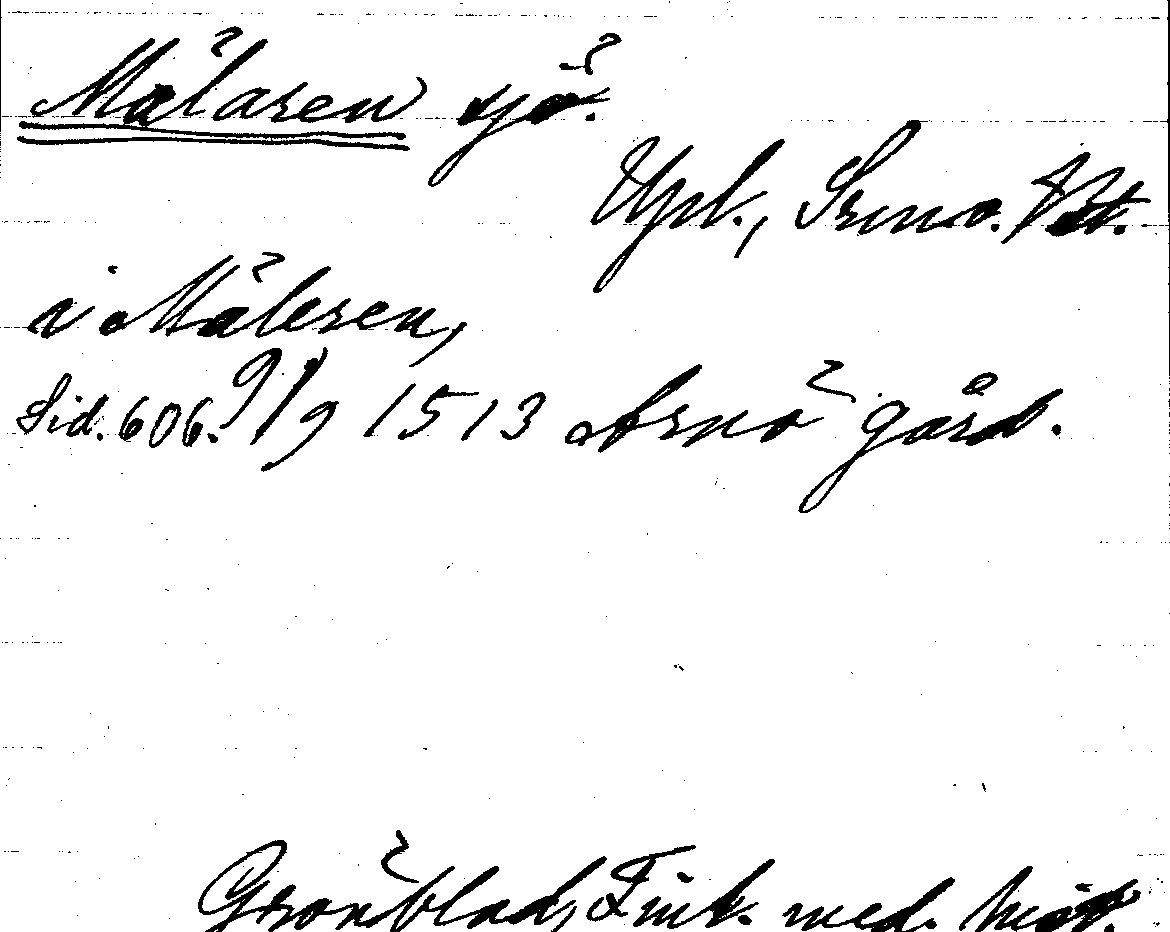 Mälaren sjö.
Upl., Srmo. Vst.
i Mäleren,
Sid. 606. 9/9 1513 Arnö gård.
Grönblad, Fink. med. hist.